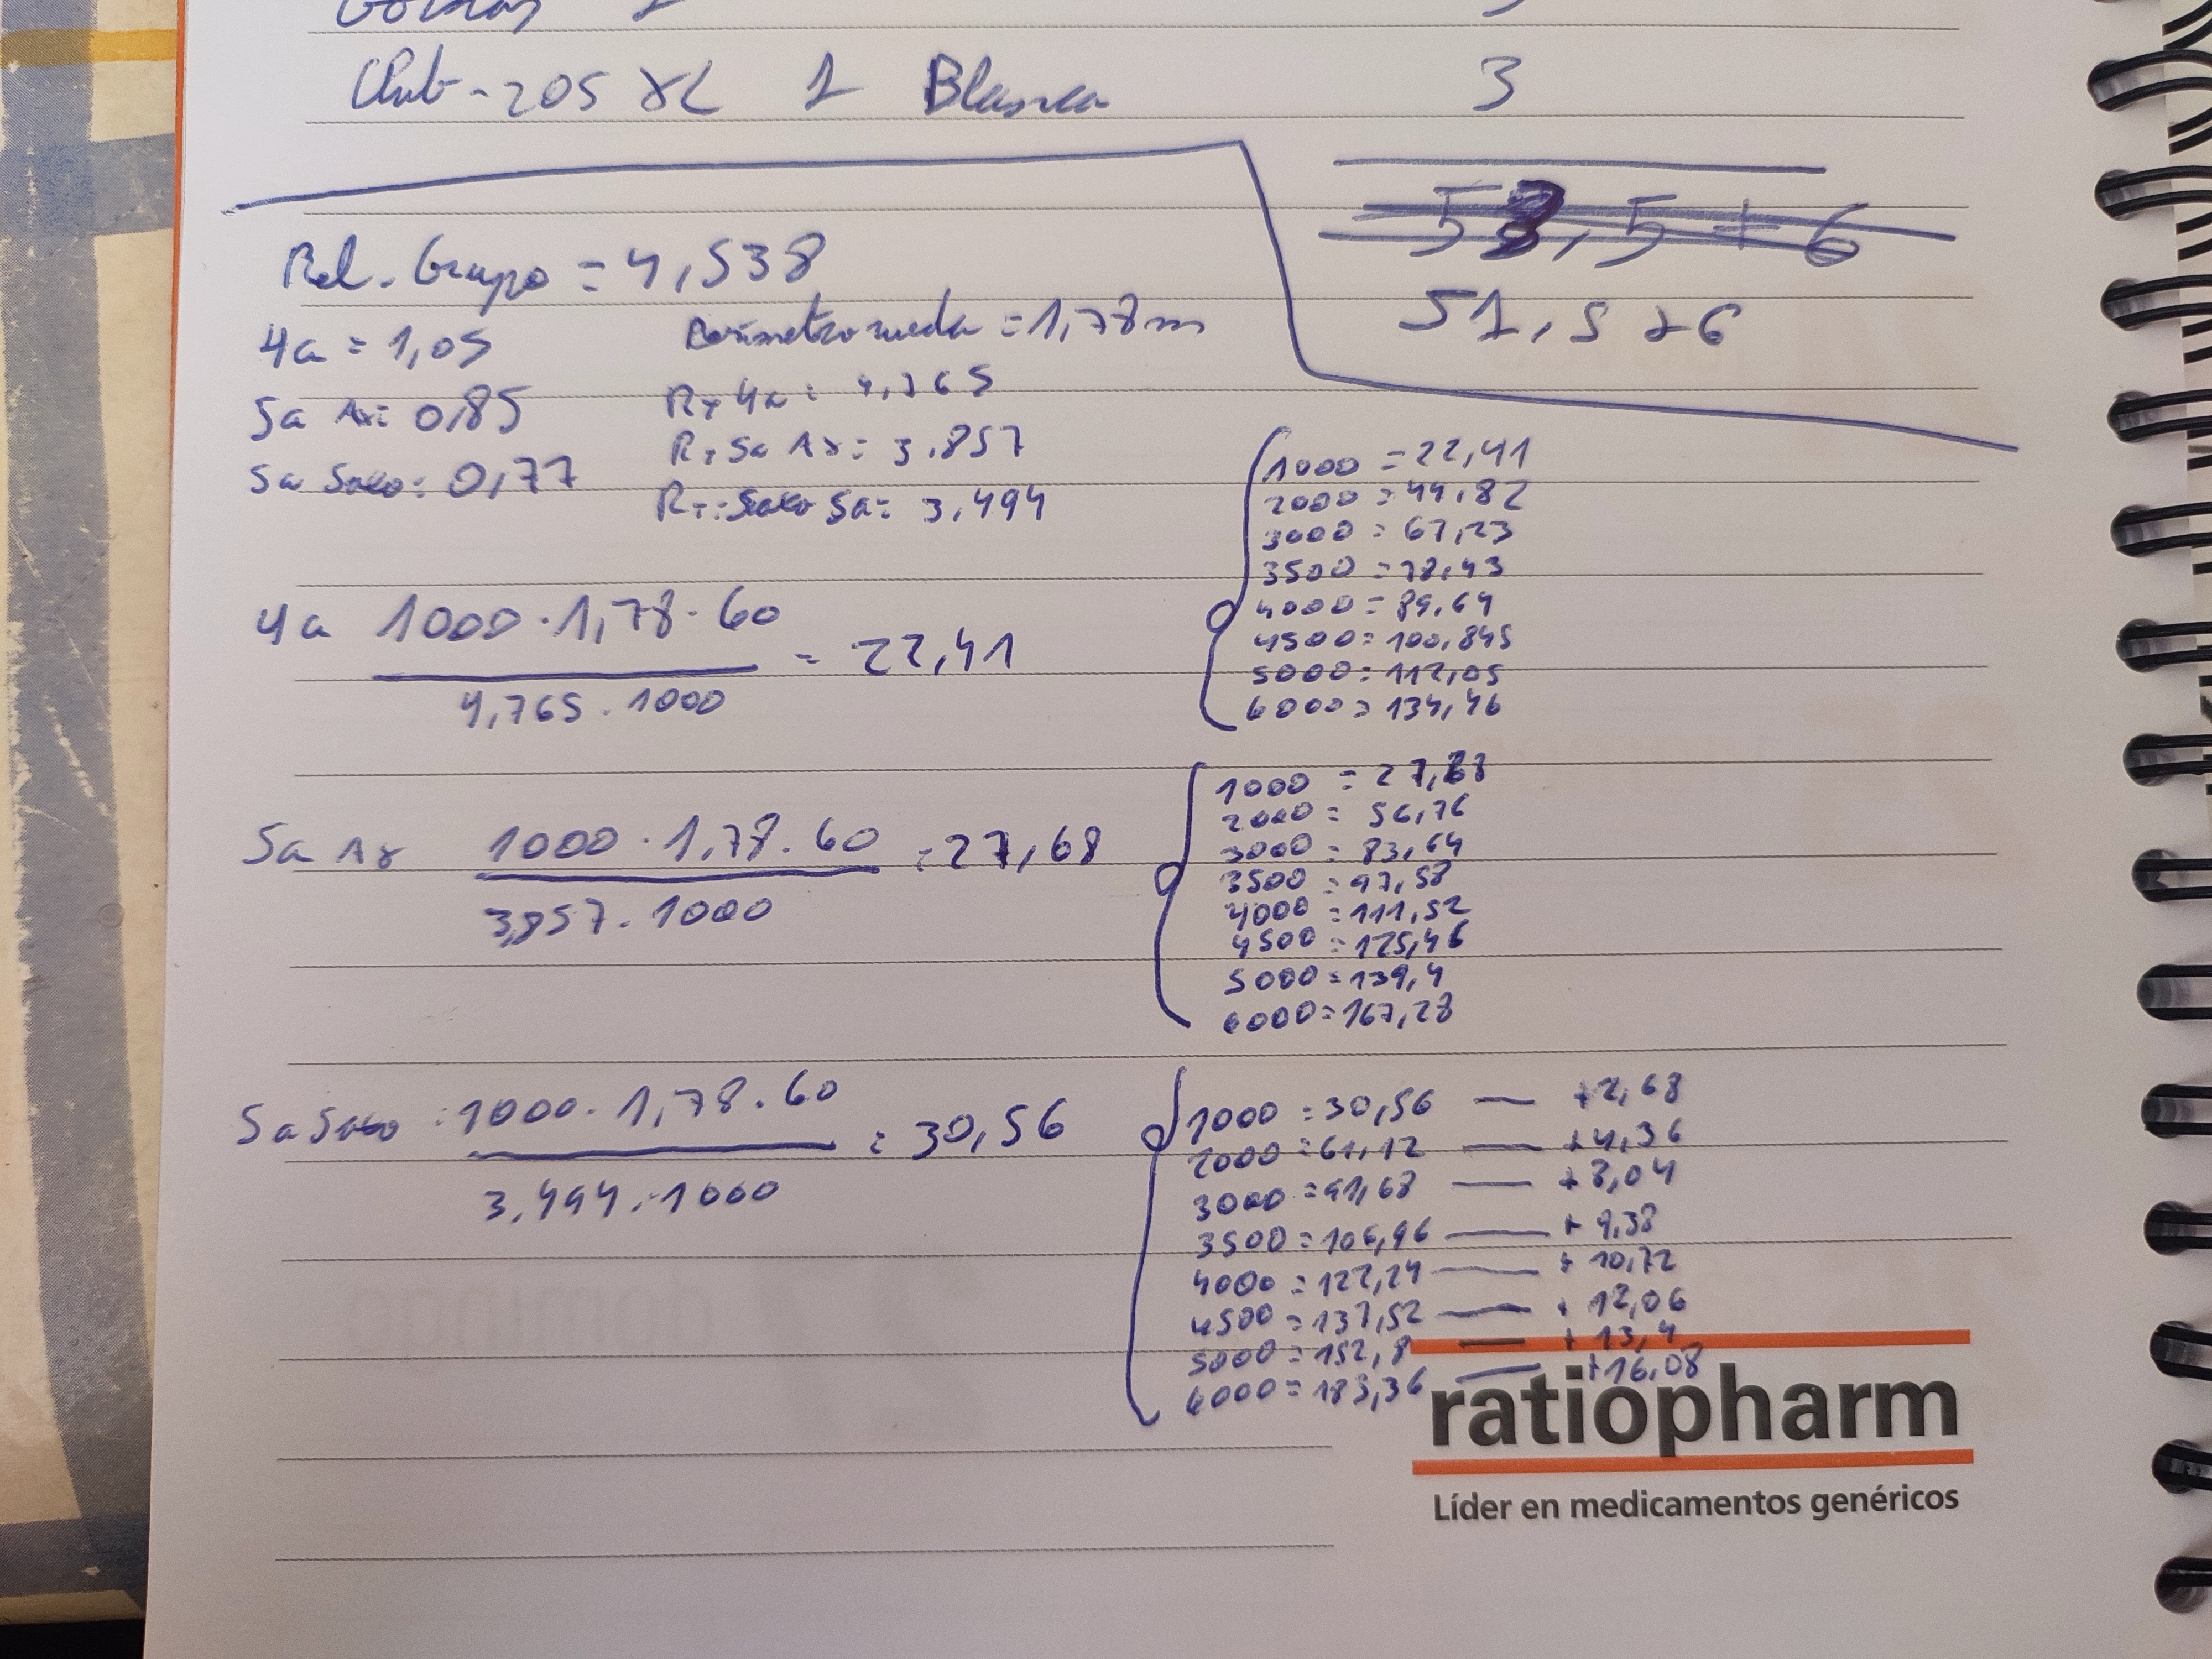 205 XL 1 Blanca 3
53,5 + 6
51,5 + 6
Rel. Grupo = 4,538
4a = 1,05
Perímetro rueda = 1,78m
5a Ax: 0,85
RT 4a: 4,765
RT 5a Ax: 3,857
5a Saxo: 0,77
RT: Saxo 5a: 3,494
4a 1000 · 1,78 · 60
4,765 · 1000
= 22,41
1000 = 22,41
2000 = 44,82
3000 = 67,23
3500 = 78,43
4000 = 89,64
4500 = 100,845
5000 = 112,05
6000 = 134,46
5a Ax 1000 · 1,78 · 60
3,857 · 1000
= 27,68
1000 = 27,88
2000 = 56,76
3000 = 83,64
3500 = 97,58
4000 = 111,52
4500 = 125,46
5000 = 139,4
6000 = 167,28
5a Saxo : 1000 · 1,78 · 60
3,494 · 1000
= 30,56
1000 = 30,56 — +2,68
2000 = 61,12 — +4,36
3000 = 91,68 — +8,04
3500 = 106,96 — + 9,38
4000 = 122,24 — + 10,72
4500 = 137,52 — + 12,06
5000 = 152,8 — + 13,4
6000 = 183,36 — +16,08
ratiopharm
Líder en medicamentos genéricos